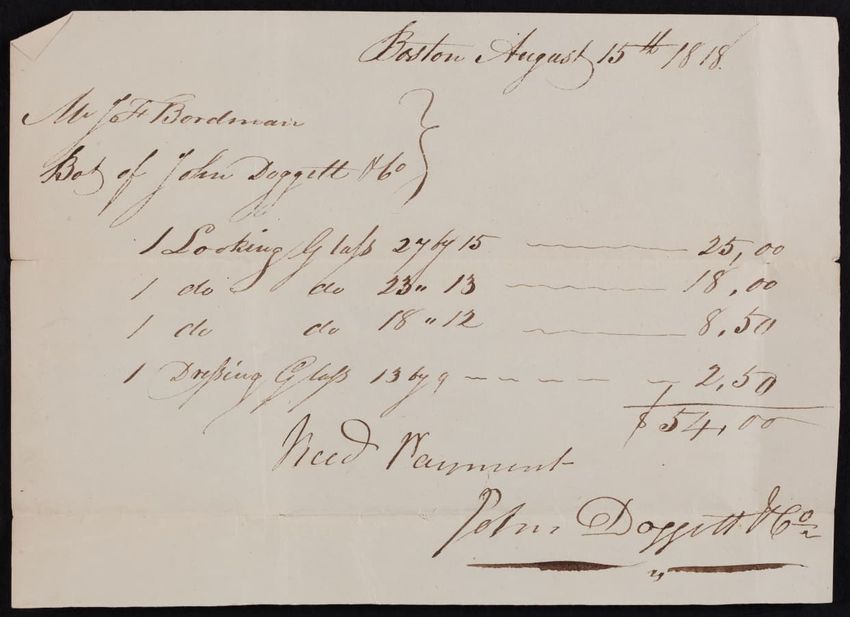 Boston August 15th 1818.
Mr J F Bordman
Bot of John Doggett & Co
1 Looking Glass 27 by 15 25,00
1 do do 23 " 13 18,00
1 do do 18 " 12 8,50
1 Dressing Glass 13 by 9 2,50
$54,00
Recd Payment
John Doggett & Co